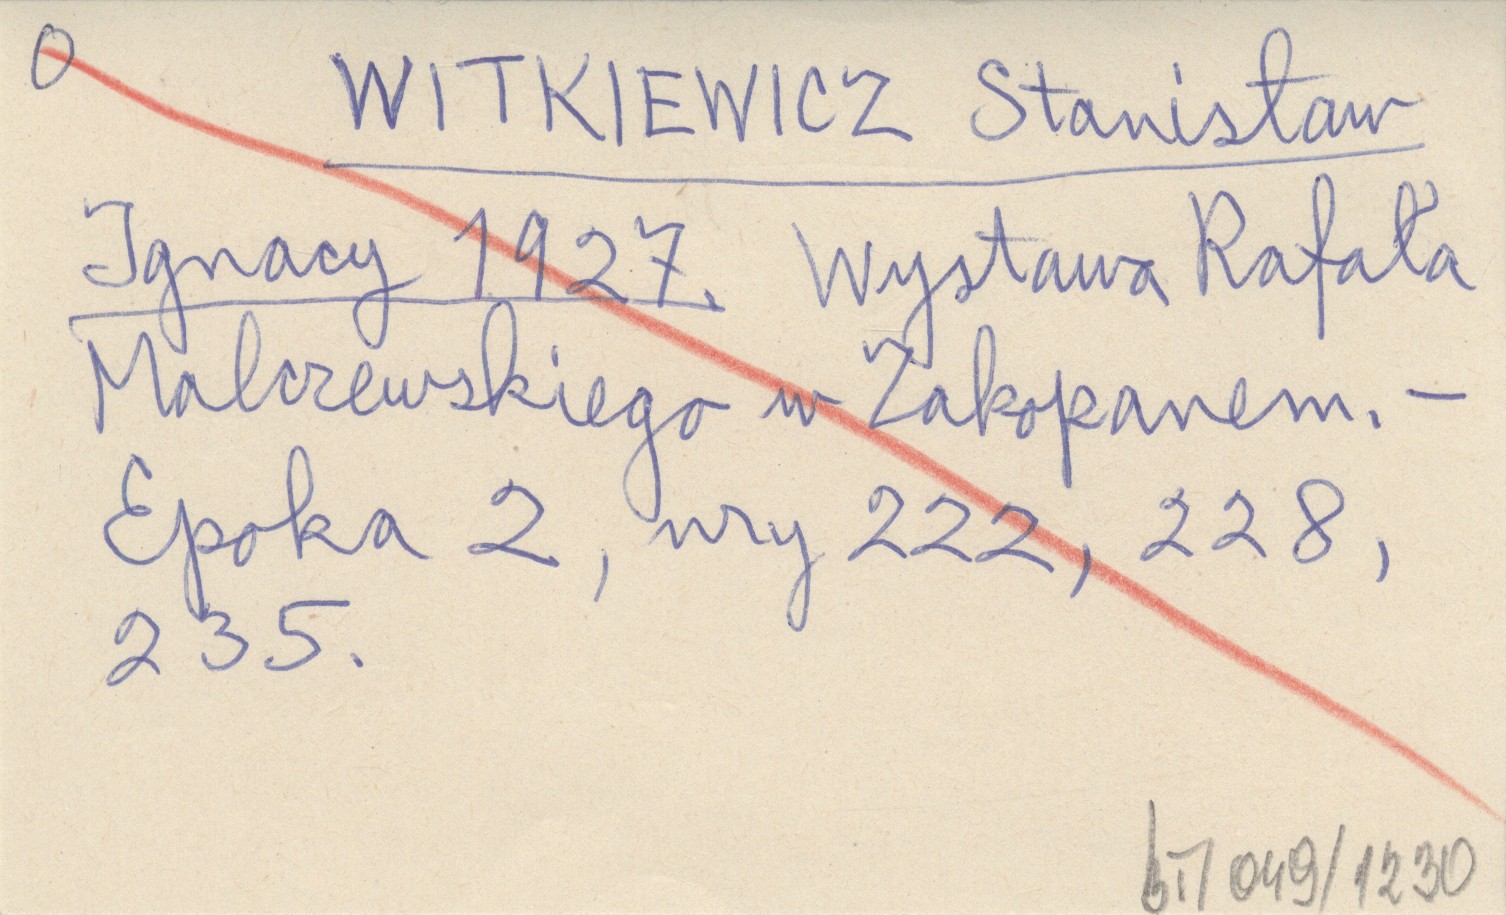 O
WITKIEWICZ Stanisław
Ignacy 1927. Wystawa Rafała
Malczewskiego w Zakopanem. –
Epoka 2, nry 222, 228,
235.
049/1230